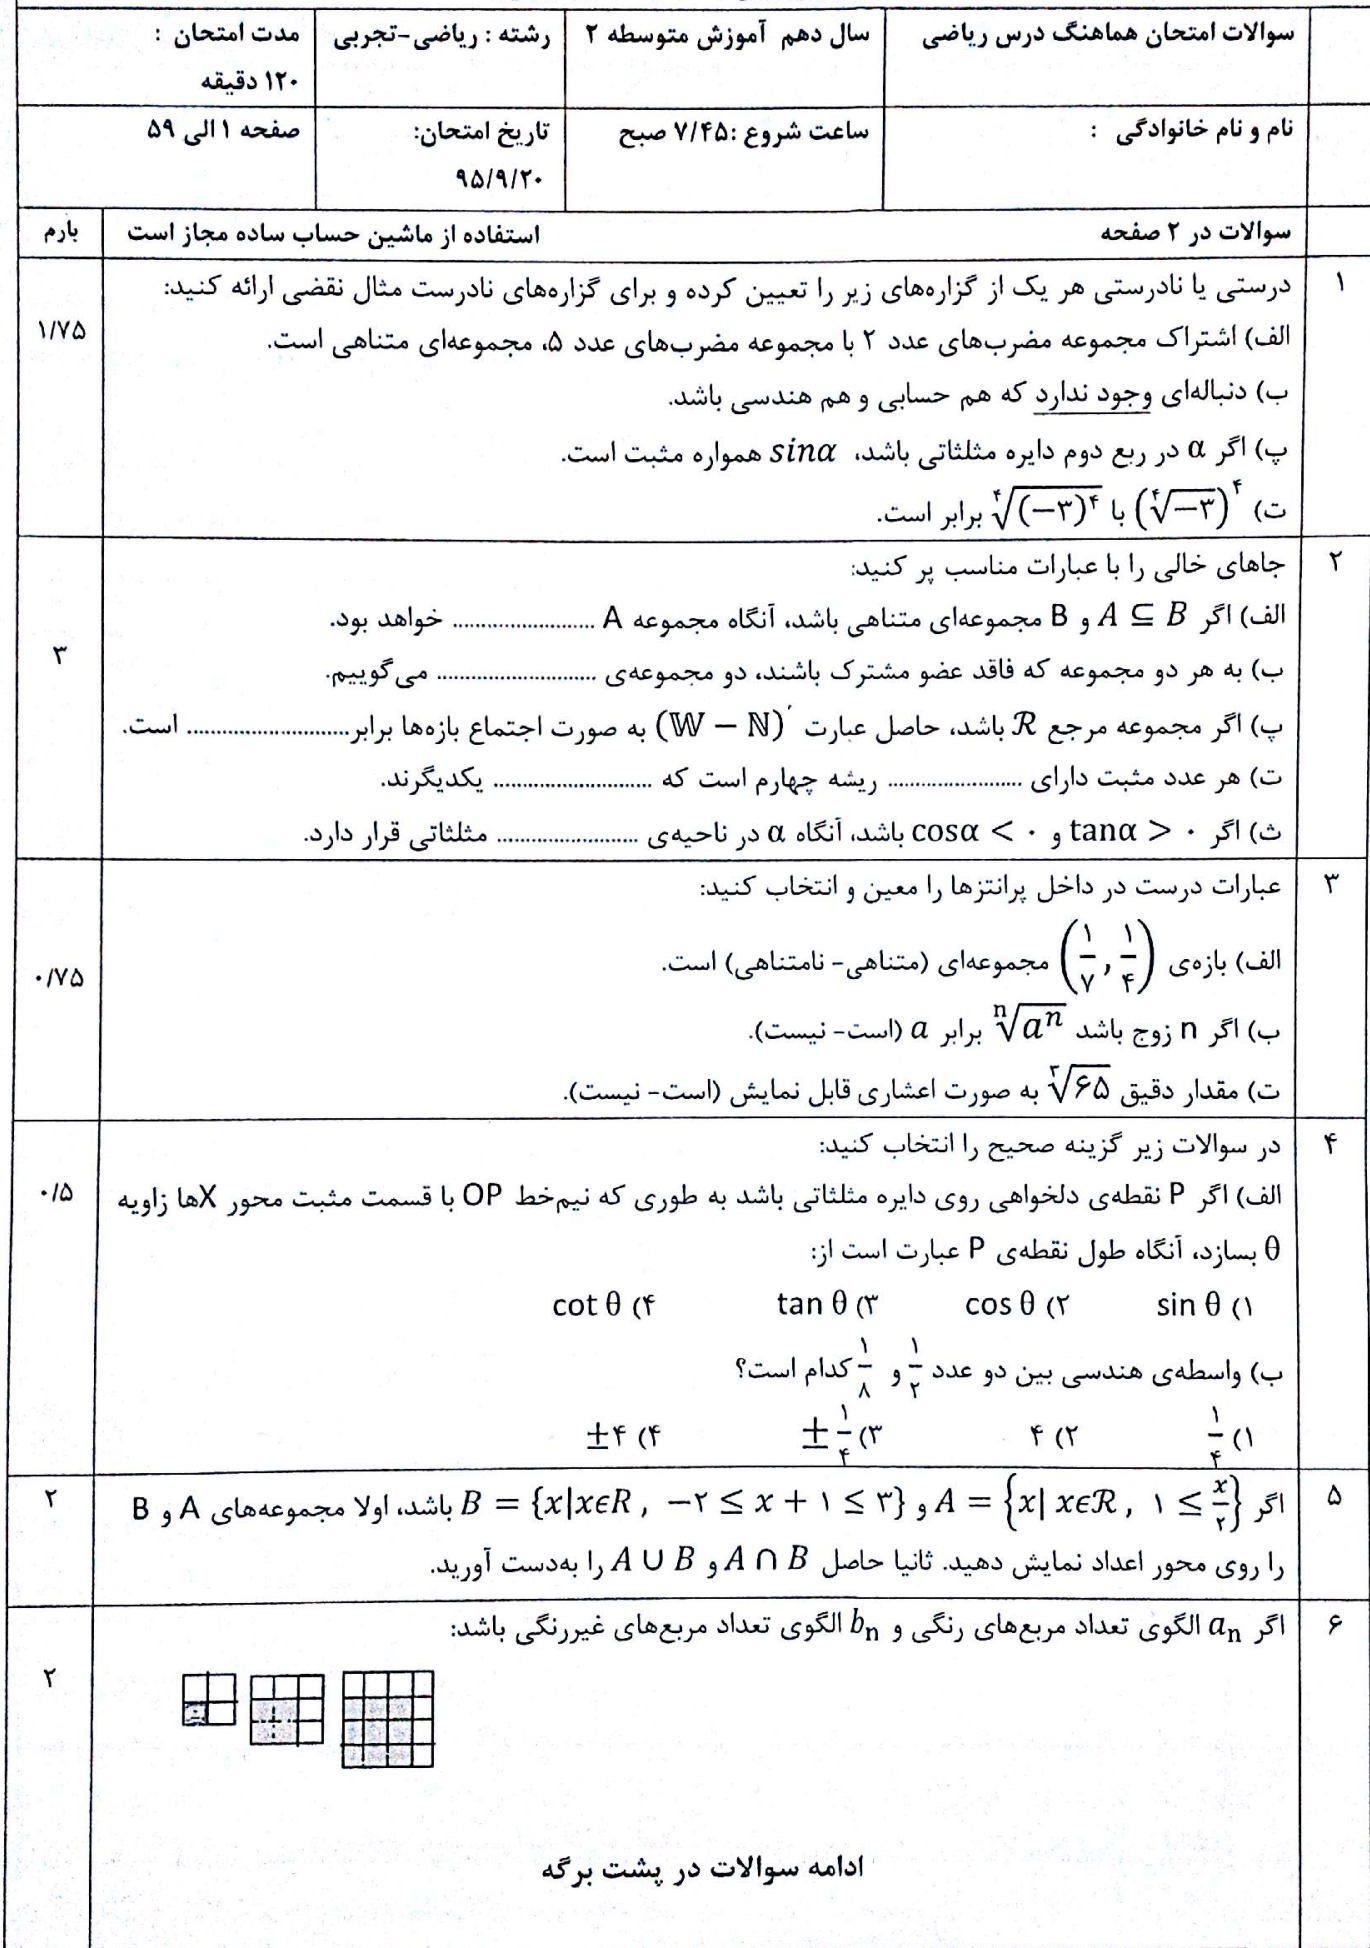 سوالات امتحان هماهنگ درس ریاضی
سال دهم آموزش متوسطه ۲
رشته : ریاضی-تجربی
مدت امتحان :
۱۲۰ دقیقه
نام و نام خانوادگی :
ساعت شروع :۷/۴۵ صبح
تاریخ امتحان:
۹۵/۹/۲۰
صفحه ۱ الی ۵۹
سوالات در ۲ صفحه
استفاده از ماشین حساب ساده مجاز است
بارم
۱
درستی یا نادرستی هر یک از گزاره‌های زیر را تعیین کرده و برای گزاره‌های نادرست مثال نقضی ارائه کنید:
۱/۷۵
الف) اشتراک مجموعه مضرب‌های عدد ۲ با مجموعه مضرب‌های عدد ۵، مجموعه‌ای متناهی است.
ب) دنباله‌ای وجود ندارد که هم حسابی و هم هندسی باشد.
پ) اگر α در ربع دوم دایره مثلثاتی باشد، sinα همواره مثبت است.
ت) (∜−۳)^۴ با ∜(−۳)^۴ برابر است.
۲
جاهای خالی را با عبارات مناسب پر کنید:
الف) اگر A ⊆ B و B مجموعه‌ای متناهی باشد، آنگاه مجموعه A ......................... خواهد بود.
۳
ب) به هر دو مجموعه که فاقد عضو مشترک باشند، دو مجموعه‌ی ............................ می‌گوییم.
پ) اگر مجموعه مرجع ℛ باشد، حاصل عبارت (𝕎 − ℕ)′ به صورت اجتماع بازه‌ها برابر............................ است.
ت) هر عدد مثبت دارای ........................ ریشه چهارم است که ............................ یکدیگرند.
ث) اگر tanα > ۰ و cosα < ۰ باشد، آنگاه α در ناحیه‌ی ......................... مثلثاتی قرار دارد.
۳
عبارات درست در داخل پرانتزها را معین و انتخاب کنید:
الف) بازه‌ی (۱/۷ , ۱/۴) مجموعه‌ای (متناهی- نامتناهی) است.
۰/۷۵
ب) اگر n زوج باشد ⁿ√aⁿ برابر a (است- نیست).
ت) مقدار دقیق ∛۶۵ به صورت اعشاری قابل نمایش (است- نیست).
۴
در سوالات زیر گزینه صحیح را انتخاب کنید:
۰/۵
الف) اگر P نقطه‌ی دلخواهی روی دایره مثلثاتی باشد به طوری که نیم‌خط OP با قسمت مثبت محور Xها زاویه
θ بسازد، آنگاه طول نقطه‌ی P عبارت است از:
۱) sin θ ۲) cos θ ۳) tan θ ۴) cot θ
ب) واسطه‌ی هندسی بین دو عدد ۱/۲ و ۱/۸ کدام است؟
۱) ۱/۴ ۲) ۴ ۳) ±۱/۴ ۴) ±۴
۵
اگر A = {x| xϵℛ , ۱ ≤ x/۲} و B = {x|xϵR , −۲ ≤ x + ۱ ≤ ۳} باشد، اولا مجموعه‌های A و B
۲
را روی محور اعداد نمایش دهید. ثانیا حاصل A ∩ B و A ∪ B را به‌دست آورید.
۶
اگر aₙ الگوی تعداد مربع‌های رنگی و bₙ الگوی تعداد مربع‌های غیررنگی باشد:
۲
ادامه سوالات در پشت برگه